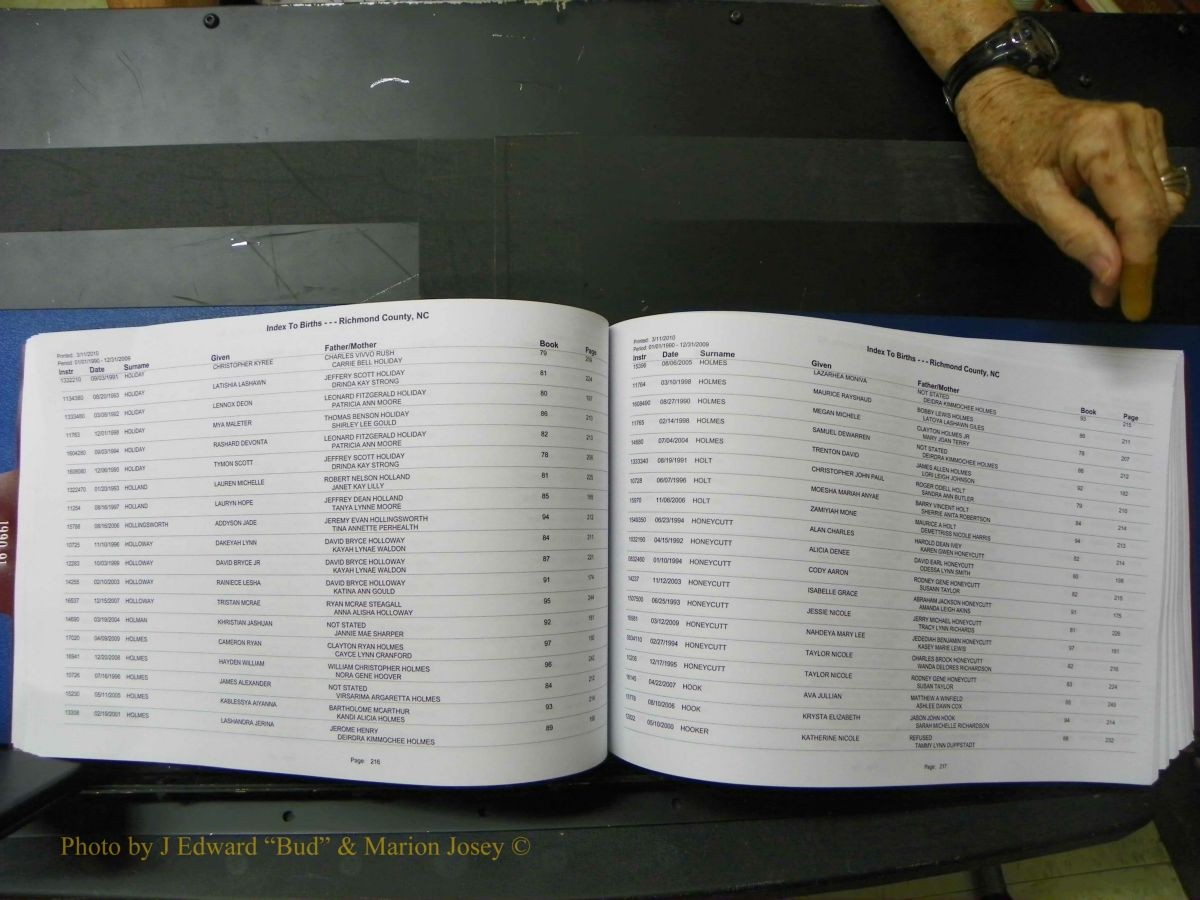 Index To Births - - - Richmond County, NC
Printed: 3/11/2010
Period: 01/01/1990 - 12/31/2009
Instr Date Surname Given Father/Mother Book Page
1332210 09/03/1991 HOLIDAY CHRISTOPHER KYREE CHARLES VIVVO RUSH 79
CARRIE BELL HOLIDAY
1134380 08/20/1993 HOLIDAY LATISHIA LASHAWN JEFFERY SCOTT HOLIDAY 81 224
DRINDA KAY STRONG
1333460 03/08/1992 HOLIDAY LENNOX DEON LEONARD FITZGERALD HOLIDAY 80
PATRICIA ANN MOORE
11763 12/01/1998 HOLIDAY MYA MALETER THOMAS BENSON HOLIDAY 86
SHIRLEY LEE GOULD
1604280 09/03/1994 HOLIDAY RASHARD DEVONTA LEONARD FITZGERALD HOLIDAY 82 213
PATRICIA ANN MOORE
1608080 12/06/1990 HOLIDAY TYMON SCOTT JEFFREY SCOTT HOLIDAY 78
DRINDA KAY STRONG
1322470 01/20/1993 HOLLAND LAUREN MICHELLE ROBERT NELSON HOLLAND 81
JANET KAY LILLY
11254 08/16/1997 HOLLAND LAURYN HOPE JEFFREY DEAN HOLLAND 85
TANYA LYNNE MOORE
15788 08/16/2006 HOLLINGSWORTH ADDYSON JADE JEREMY EVAN HOLLINGSWORTH 94 212
TINA ANNETTE PERHEALTH
10725 11/10/1996 HOLLOWAY DAKEYAH LYNN DAVID BRYCE HOLLOWAY 84 211
KAYAH LYNAE WALDON
12283 10/03/1999 HOLLOWAY DAVID BRYCE JR DAVID BRYCE HOLLOWAY 87 221
KAYAH LYNAE WALDON
14255 02/10/2003 HOLLOWAY RAINIECE LESHA DAVID BRYCE HOLLOWAY 91 174
KATINA ANN GOULD
16537 12/15/2007 HOLLOWAY TRISTAN MCRAE RYAN MCRAE STEAGALL 95 244
ANNA ALISHA HOLLOWAY
14690 03/19/2004 HOLMAN KHRISTIAN JASHUAN NOT STATED 92
JANNIE MAE SHARPER
17020 04/09/2009 HOLMES CAMERON RYAN CLAYTON RYAN HOLMES 97
CAYCE LYNN CRANFORD
16941 12/20/2008 HOLMES HAYDEN WILLIAM WILLIAM CHRISTOPHER HOLMES 96 242
NORA GENE HOOVER
10726 07/16/1996 HOLMES JAMES ALEXANDER NOT STATED 84 212
VIRSARIMA ARGARETTA HOLMES
15230 05/11/2005 HOLMES KABLESSYA AIYANNA BARTHOLOME MCARTHUR 93 214
KANDI ALICIA HOLMES
13358 02/15/2001 HOLMES LASHANDRA JERINA JEROME HENRY 89
DEIRDRA KIMMOCHEE HOLMES
Page: 216
Index To Births - - - Richmond County, NC
Printed: 3/11/2010
Period: 01/01/1990 - 12/31/2009
Instr Date Surname Given Father/Mother Book Page
15396 08/06/2005 HOLMES LAZARHEA MONIVA NOT STATED 93 215
DEIDRA KIMMOCHEE HOLMES
11764 03/10/1998 HOLMES MAURICE RAYSHAUD BOBBY LEWIS HOLMES 86 211
LATOYA LASHAWN GILES
1608490 08/27/1990 HOLMES MEGAN MICHELE CLAYTON HOLMES JR 78 207
MARY JOAN TERRY
11765 02/14/1998 HOLMES SAMUEL DEWARREN NOT STATED 86 212
DEIRDRA KIMMOCHEE HOLMES
14680 07/04/2004 HOLMES TRENTON DAVID JAMES ALLEN HOLMES 92 182
LORI LEIGH JOHNSON
1333340 08/19/1991 HOLT CHRISTOPHER JOHN PAUL ROGER ODELL HOLT 79 210
SANDRA ANN BUTLER
10728 06/07/1996 HOLT MOESHA MARIAH ANYAE BARRY VINCENT HOLT 84 214
SHERRIE ANITA ROBERTSON
15970 11/06/2006 HOLT ZAMIYIAH MONE MAURICE A HOLT 94 213
DEMETTRISS NICOLE HARRIS
1549350 06/23/1994 HONEYCUTT ALAN CHARLES HAROLD DEAN IVEY 82 214
KAREN GWEN HONEYCUTT
1032190 04/15/1992 HONEYCUTT ALICIA DENEE DAVID EARL HONEYCUTT 80
ODESSA LYNN SMITH
0832460 01/10/1994 HONEYCUTT CODY AARON RODNEY GENE HONEYCUTT 82 215
SUSANN TAYLOR
14237 11/12/2003 HONEYCUTT ISABELLE GRACE ABRAHAM JACKSON HONEYCUTT 91 175
AMANDA LEIGH AKINS
1507500 06/25/1993 HONEYCUTT JESSIE NICOLE JERRY MICHAEL HONEYCUTT 81 226
TRACY LYNN RICHARDS
03/12/2009 HONEYCUTT NAHDEYA MARY LEE JEDEDIAH BENJAMIN HONEYCUTT 97 191
KASEY MARIE LEWIS
02/27/1994 HONEYCUTT TAYLOR NICOLE CHARLES BROCK HONEYCUTT 82 216
WANDA DELORES RICHARDSON
12/17/1995 HONEYCUTT TAYLOR NICOLE RODNEY GENE HONEYCUTT 83 224
SUSAN TAYLOR
04/22/2007 HOOK AVA JULLIAN MATTHEW A WINFIELD 243
ASHLEE DAWN COX
08/10/2006 HOOK KRYSTA ELIZABETH JASON JOHN HOOK 94 214
SARAH MICHELLE RICHARDSON
05/10/2000 HOOKER KATHERINE NICOLE REFUSED 88 232
TAMMY LYNN DUFFSTADT
Page: 217
Photo by J Edward “Bud” & Marion Josey ©